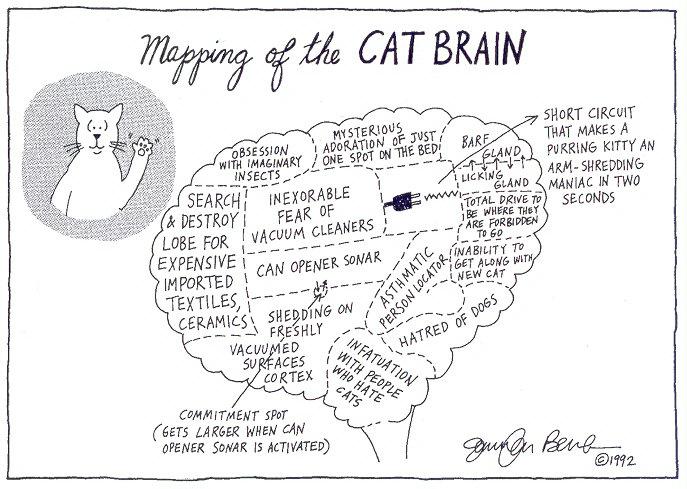 Mapping of the CAT BRAIN
SHORT CIRCUIT
THAT MAKES A
PURRING KITTY AN
ARM-SHREDDING
MANIAC IN TWO
SECONDS
OBSESSION
WITH IMAGINARY
INSECTS
MYSTERIOUS
ADORATION OF JUST
ONE SPOT ON THE BED
BARF
GLAND
LICKING
GLAND
SEARCH
& DESTROY
LOBE FOR
EXPENSIVE
IMPORTED
TEXTILES,
CERAMICS
INEXORABLE
FEAR OF
VACUUM CLEANERS
TOTAL DRIVE TO
BE WHERE THEY
ARE FORBIDDEN
TO GO
CAN OPENER SONAR
ASTHMATIC
PERSON LOCATOR
INABILITY TO
GET ALONG WITH
NEW CAT
SHEDDING ON
FRESHLY
VACUUMED
SURFACES
CORTEX
HATRED OF DOGS
INFATUATION
WITH PEOPLE
WHO HATE
CATS
COMMITMENT SPOT
(GETS LARGER WHEN CAN
OPENER SONAR IS ACTIVATED)
©1992